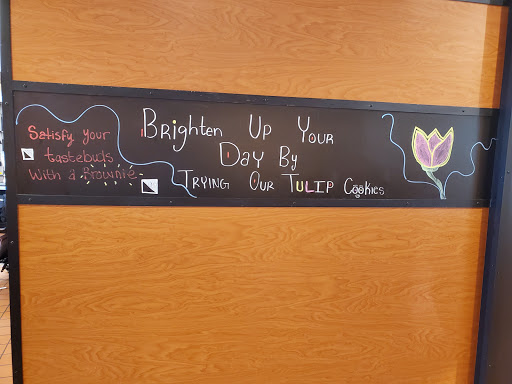 Satisfy your
tastebuds
With a Brownie
Brighten Up Your
Day By
Trying Our TULIP Cookies